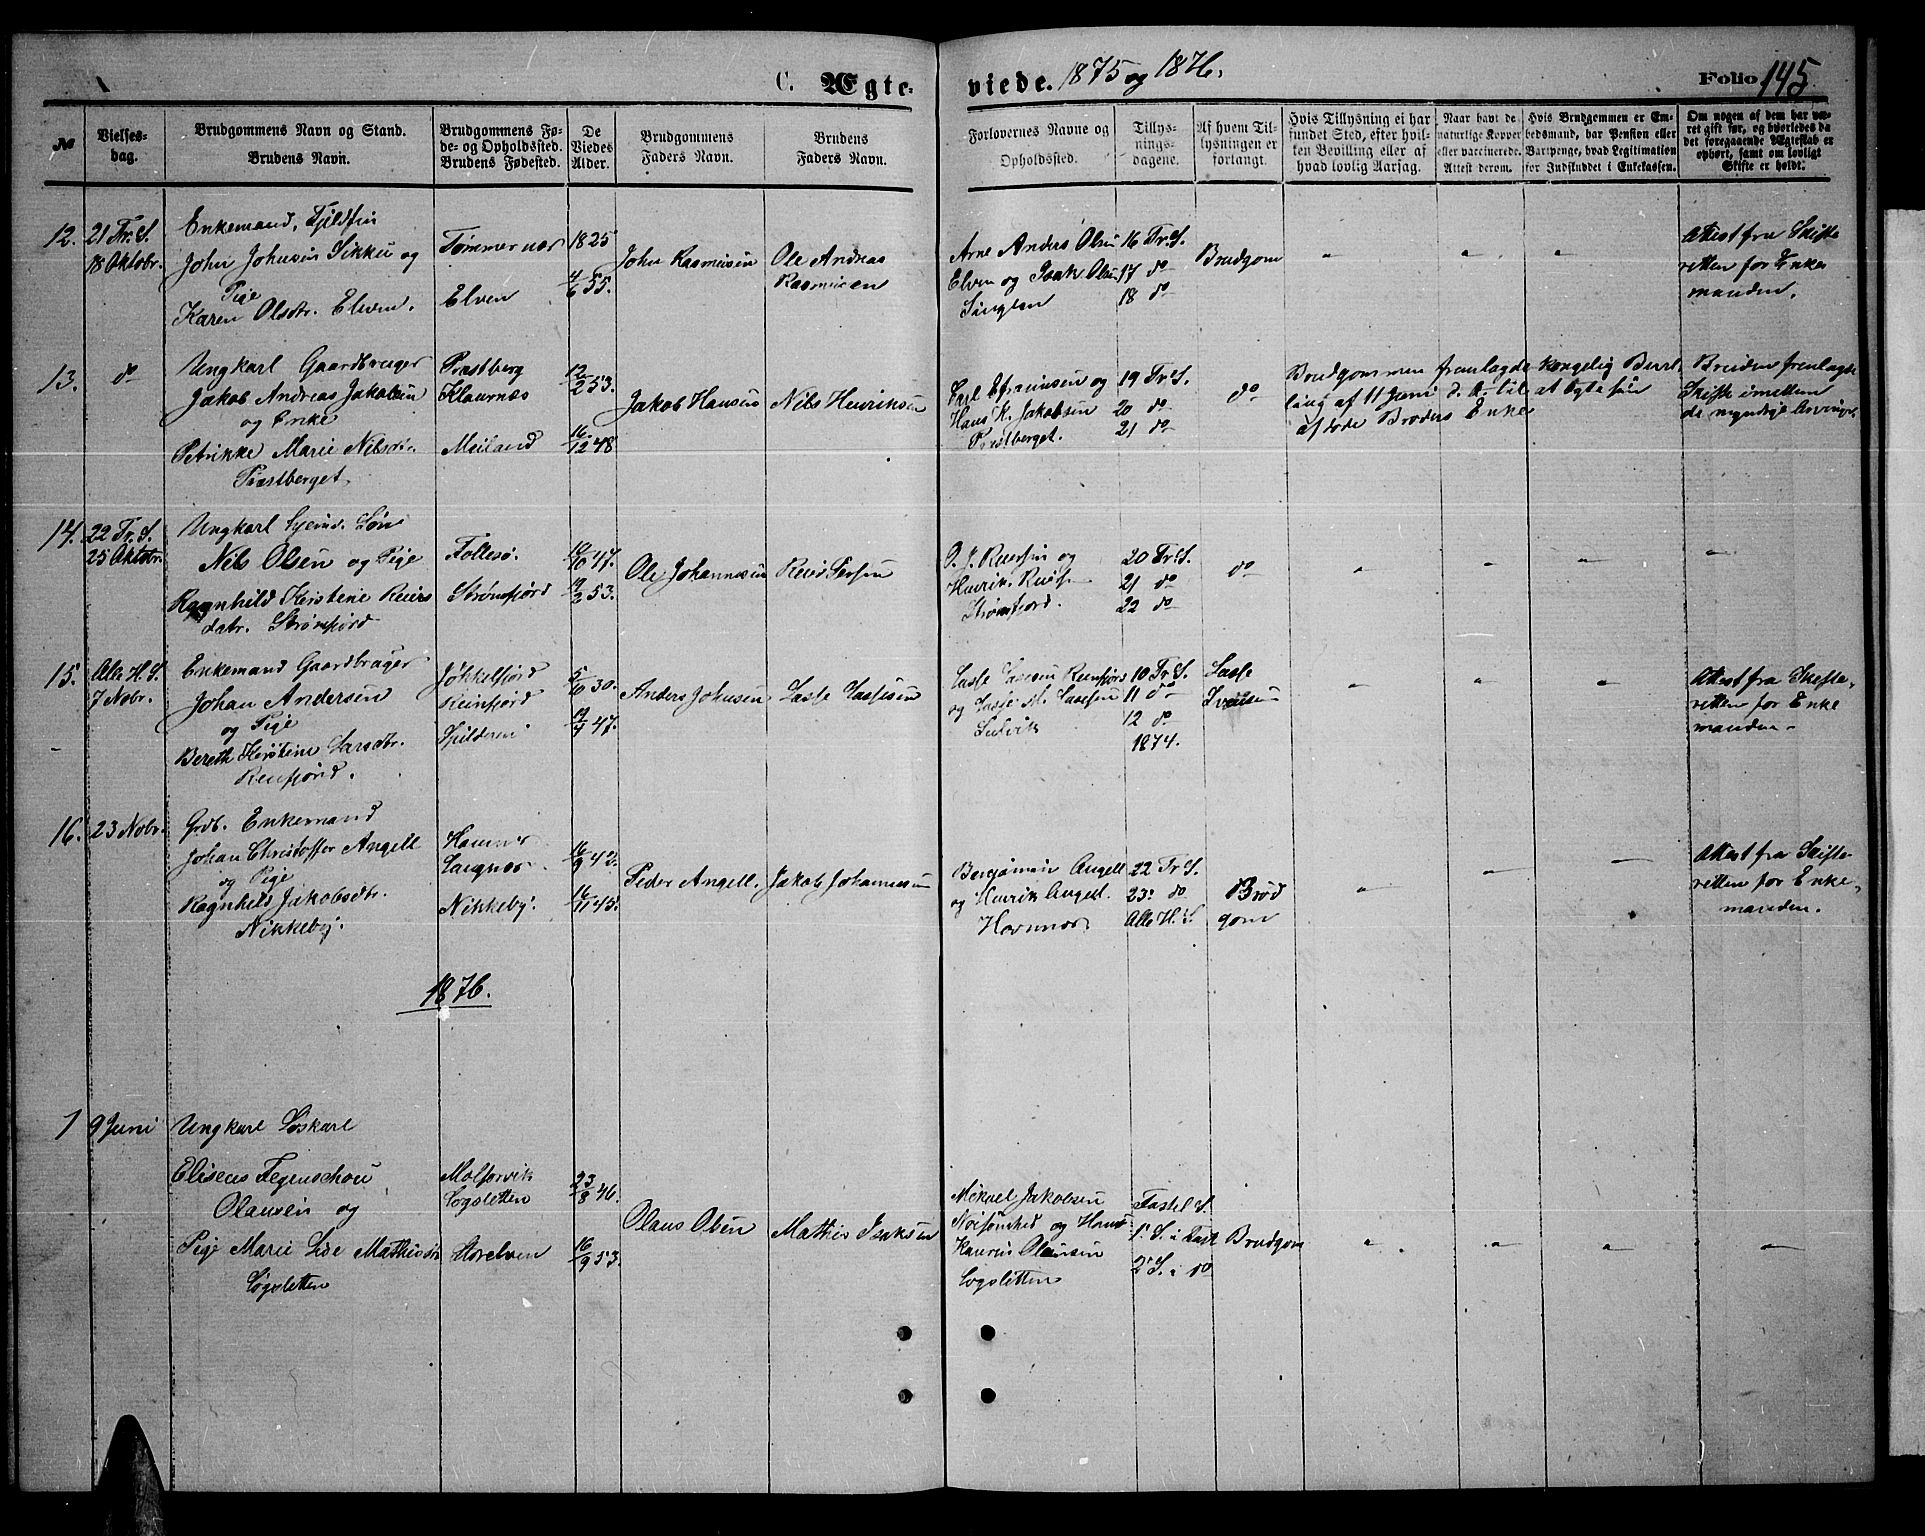 C. Ægteviede. 1875 og 1876.
Folio 145
№
Vielsesdag.
Brudgommens Navn og Stand.
Brudens Navn.
Brudgommens Føde- og Opholdssted.
Brudens Fødested.
De Viedes Alder.
Brudgommens Faders Navn.
Brudens Faders Navn.
Forlovernes Navne og Opholdssted.
Tillysningsdagene.
Af hvem Tillysningen er forlangt.
Hvis Tillysning ei har fundet Sted, efter hvilken Bevilling eller af hvad lovlig Aarsag.
Naar havt de naturlige Kopper eller vaccinerede. Attest derom.
Hvis Brudgommen er Embedsmand, har Pension eller Vartpenge, hvad Legitimation for Indskuddet i Enkekassen.
Om nogen af dem har været gift før, og hvorledes da det foregaaende Ægteskab er ophørt, samt om lovligt Skifte er holdt.
12.
21 Tr. S.
18 Oktobr.
Enkemand, Fjeldfin
John Johnsen Sikku og
Pige
Karen Olsdtr. Elven.
Tømmernæs
Elven
1825
4/6 55.
John Rasmusen
Ole Andreas
Rasmusen
Arne Anders Olsen
Elven og Isak Olsen
16 Tr. S.
17 do
18 do
Brudgom
" " "
Attest fra Skifte
retten for Enke
manden.
13.
do
Ungkarl Gaardbruger
Jakob Andreas Jakobsen
og Enke
Petrikke Marie Nilsdtr.
Præstberget.
Præstberg
Klauenæs
Meiland
12/2 53.
16/12 48
Jakob Hansen
Nils Henriksen
Carl Efraimsen og
Hans K. Jakobsen
Præstberget.
19 Tr. S.
20 do
21 do
do
Brudgommen fremlagde kongelig Bevil
ling af 11 Juni d. A. til at ægte sin
afdøde Broders Enke
Bruden fremlagde
Skifte imellem
de myndige Arvinger
14.
22 Tr. S.
25 Oktobr.
Ungkarl Søn
Nils Olsen og Pige
Ragnhild Kirstine Reiers
datr. Strømfjord
Follesø.
Strømfjord
10/10 47.
19/2 53.
Ole Johannesen
Reier Persen
O. J. Reiersen og
Henrik Reiers.
Strømfjord.
20 Tr. S.
21 do
22 do
do
" " – –
15.
Alle H. S.
7 Nobr.
Enkemand Gaardbruger
Johan Andersen
og Pige
Bereth Kirstine Larsdtr.
Reinfjord.
Jøkkelfjord
Reinfjord
Spilderen
5/10 30.
12/4 47.
Anders Johnsen
Lasse Lassesen
Lasse Lassesen Reinfjord
og Lasse M. Lassesen
10 Tr. S.
11 do
12 do
1874.
Lasse
" " "
Attest fra Skifte-
retten for Enke
manden.
16.
23 Nobr.
Grdb. Enkemand
Johan Christoffer Angell
og Pige
Ragnhild Jakobsdtr.
Nikkeby.
Havnnæs
Langnæs
Nikkeby.
16/9 42.
16/11 45.
Peder Angell.
Jakob Johannesen
Benjamin Angell
og Henrik Angell.
Havnnæs
22 Tr. S.
23. do
Alle H. S.
Brud
gom
" – –
Attest fra Skifte
retten for Enke-
manden.
1876.
1
9 Juni
Ungkarl Løskarl
Eliseus Fegenschou
Olausen og
Pige Marie Lise Mathisdtr
Løgsletten
Malfarvik
Løgsletten
Storelven
23/8 46.
16/9 53.
Olaus Olsen
Mathis Isaksen
Mikael Jakobsen
og Hans
Olausen
Løgsletten
Fastel S.
1. S. i Fast
2. S. i do
Brudgom
" " " –